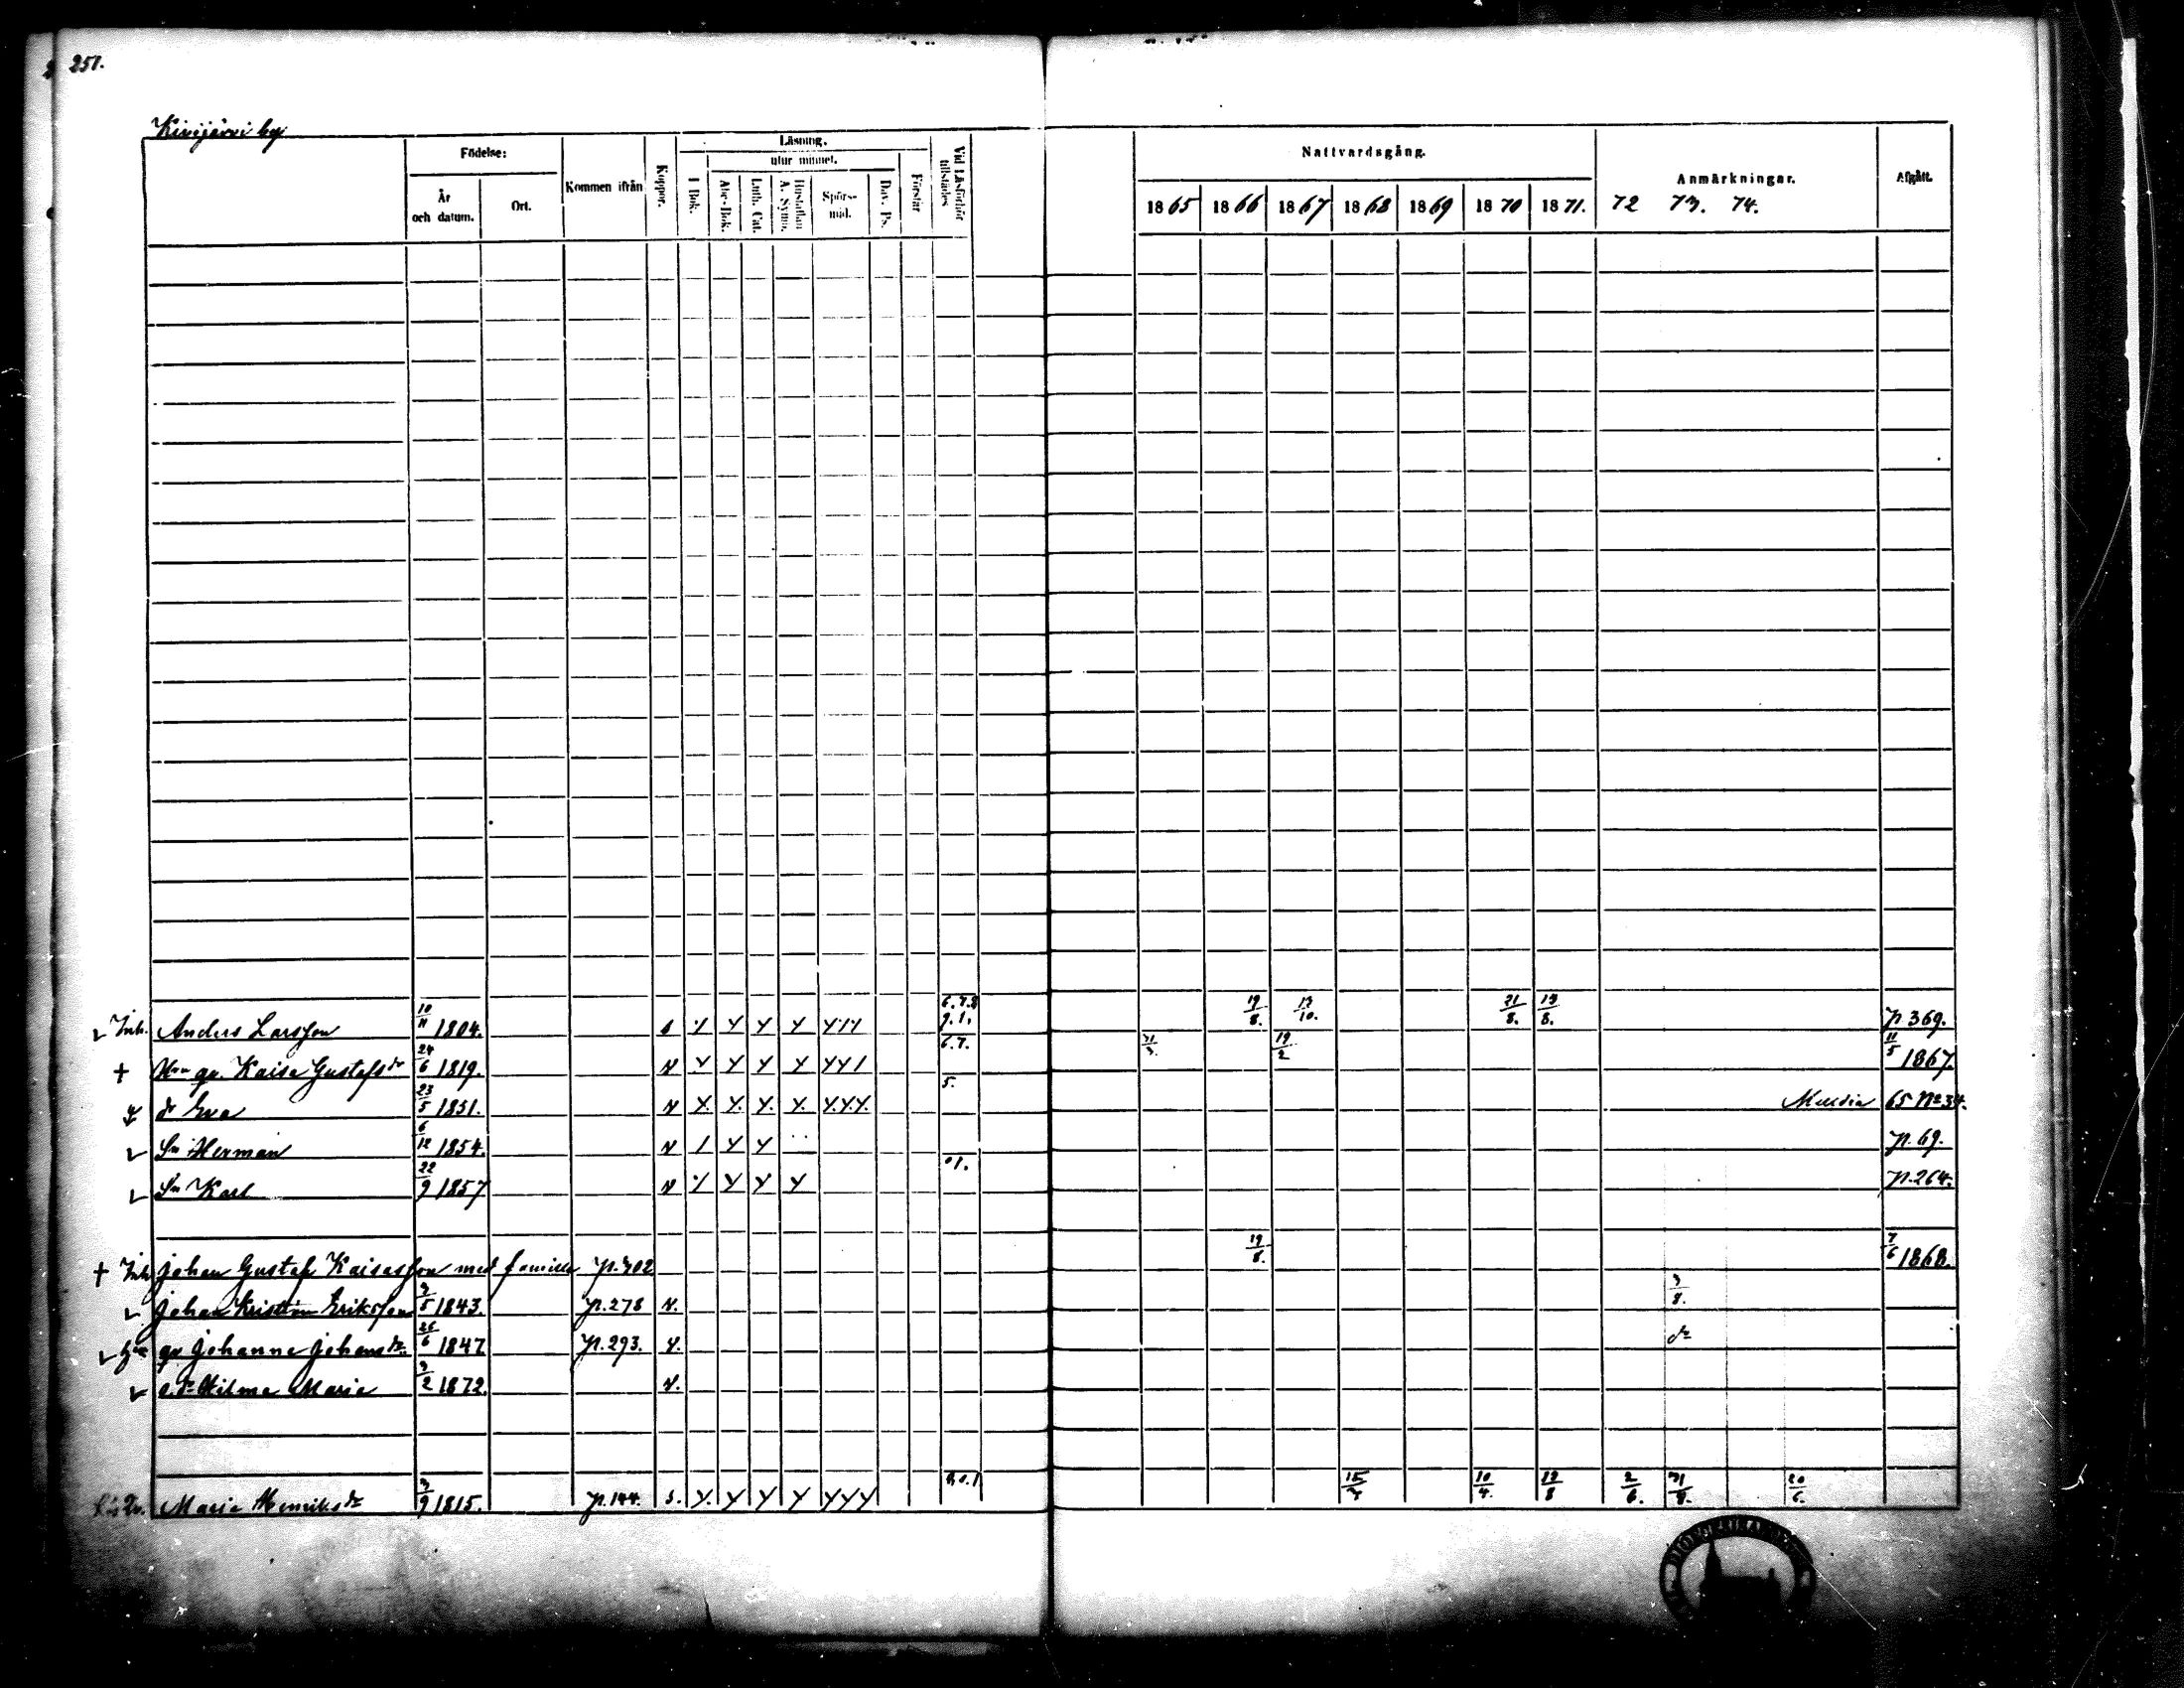 251.
Kivijärvi by
Födelse:
År och datum.
Ort.
Kommen ifrån
Koppor.
Läsning.
I Bok.
utur minnet.
Abc-Bok.
Luth. Cat.
Hustaflan A. Symb.
Spörs-mål.
Dav. Ps.
Förstår
Vid Läsförhör tillstädes
Nattvardsgång.
1865 1866 1867 1868 1869 1870 1871.
Anmärkningar.
72 73. 74.
Afgått.
Inh. Anders Larsson 10/11 1804. 6.7.8 9.1. 19/8. 13/10. 21/8. 13/8. p 369.
+ Hu gv. Kaisa Gustafsdr 24/6 1819. 6.7. 21/3. 19/2 11/5 1867.
dr Eva 23/5 1851. 5. 65 No 34.
Sn Herman 6/12 1854. p. 69.
Sn Karl 22/9 1857 01. p. 264.
+ Inh Johan Gustaf Kaisasson med familie p. 302 19/8. 7/6 1868.
Johan Kristian Eriksson 3/5 1843. p. 278 3/8.
gv Johanna Johansdr. 26/6 1847 p. 293. do
Hilma Maria 3/2 1872.
Maria Henriksdr 3/9 1815. p. 144. 15/7 10/4. 12/8 2/6. 31/8. 20/6.